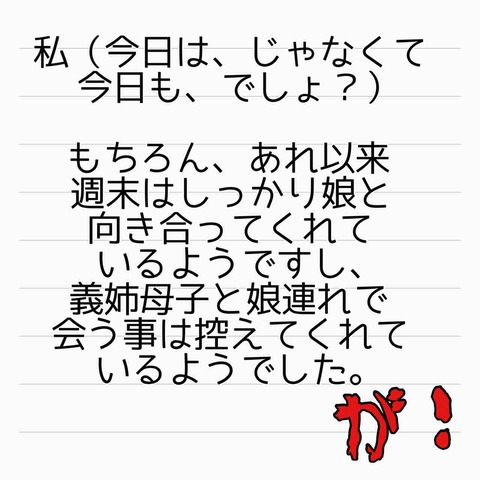 私（今日は、じゃなくて
今日も、でしょ？）
もちろん、あれ以来
週末はしっかり娘と
向き合ってくれて
いるようですし、
義姉母子と娘連れで
会う事は控えてくれて
いるようでした。
が！